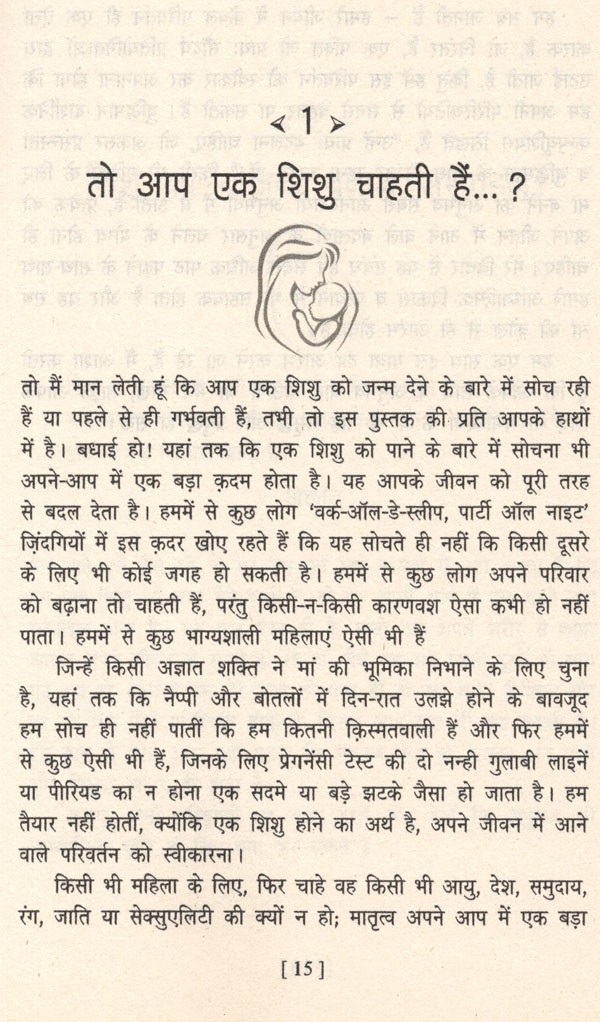 1
तो आप एक शिशु चाहती हैं...?
तो मैं मान लेती हूं कि आप एक शिशु को जन्म देने के बारे में सोच रही
हैं या पहले से ही गर्भवती हैं, तभी तो इस पुस्तक की प्रति आपके हाथों
में है। बधाई हो! यहां तक कि एक शिशु को पाने के बारे में सोचना भी
अपने-आप में एक बड़ा क़दम होता है। यह आपके जीवन को पूरी तरह
से बदल देता है। हममें से कुछ लोग ‘वर्क-ऑल-डे-स्लीप, पार्टी ऑल नाइट’
ज़िंदगियों में इस क़दर खोए रहते हैं कि यह सोचते ही नहीं कि किसी दूसरे
के लिए भी कोई जगह हो सकती है। हममें से कुछ लोग अपने परिवार
को बढ़ाना तो चाहती हैं, परंतु किसी-न-किसी कारणवश ऐसा कभी हो नहीं
पाता। हममें से कुछ भाग्यशाली महिलाएं ऐसी भी हैं
जिन्हें किसी अज्ञात शक्ति ने मां की भूमिका निभाने के लिए चुना
है, यहां तक कि नैप्पी और बोतलों में दिन-रात उलझे होने के बावजूद
हम सोच ही नहीं पातीं कि हम कितनी क़िस्मतवाली हैं और फिर हममें
से कुछ ऐसी भी हैं, जिनके लिए प्रेगनेंसी टेस्ट की दो नन्ही गुलाबी लाइनें
या पीरियड का न होना एक सदमे या बड़े झटके जैसा हो जाता है। हम
तैयार नहीं होतीं, क्योंकि एक शिशु होने का अर्थ है, अपने जीवन में आने
वाले परिवर्तन को स्वीकारना।
किसी भी महिला के लिए, फिर चाहे वह किसी भी आयु, देश, समुदाय,
रंग, जाति या सेक्सुएलिटी की क्यों न हो; मातृत्व अपने आप में एक बड़ा
[ 15 ]